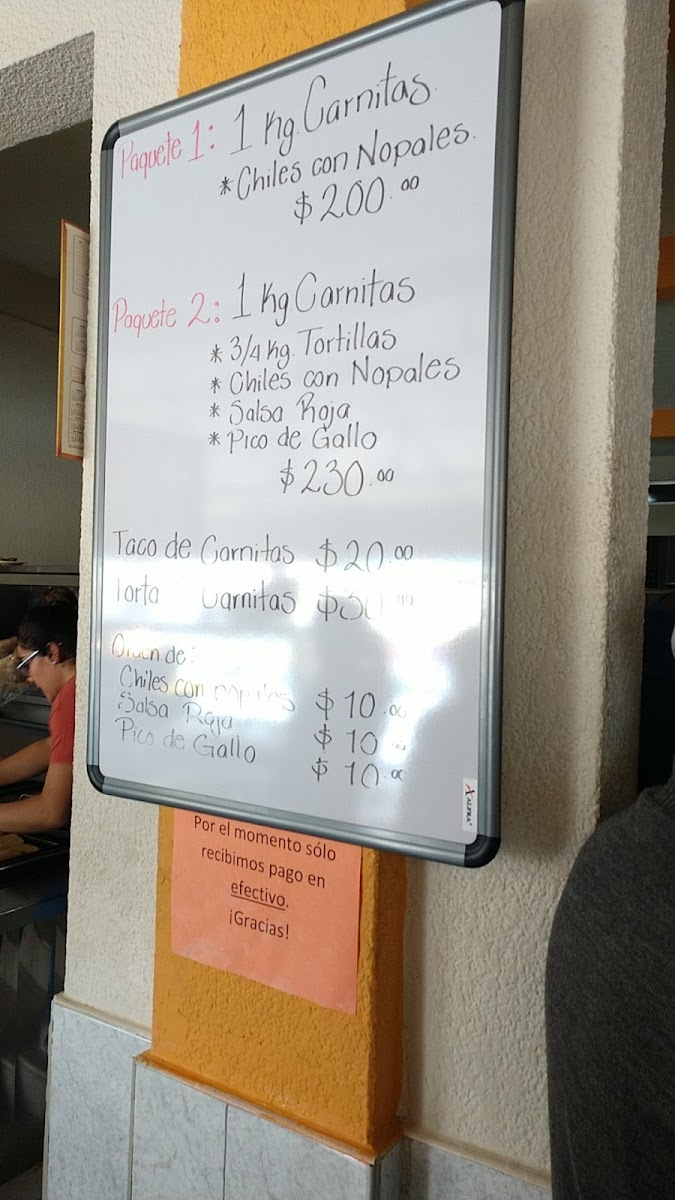 Paquete 1: 1 Kg. Carnitas
* Chiles con Nopales.
$200.00
Paquete 2: 1 Kg. Carnitas
* 3/4 Kg. Tortillas
* Chiles con Nopales
* Salsa Roja
* Pico de Gallo
$230.00
Taco de Carnitas $20.00
Torta Carnitas $30.00
Orden de:
Chiles con nopales $10.00
Salsa Roja $10
Pico de Gallo $10.00
ALFRA
Por el momento sólo
recibimos pago en
efectivo.
¡Gracias!